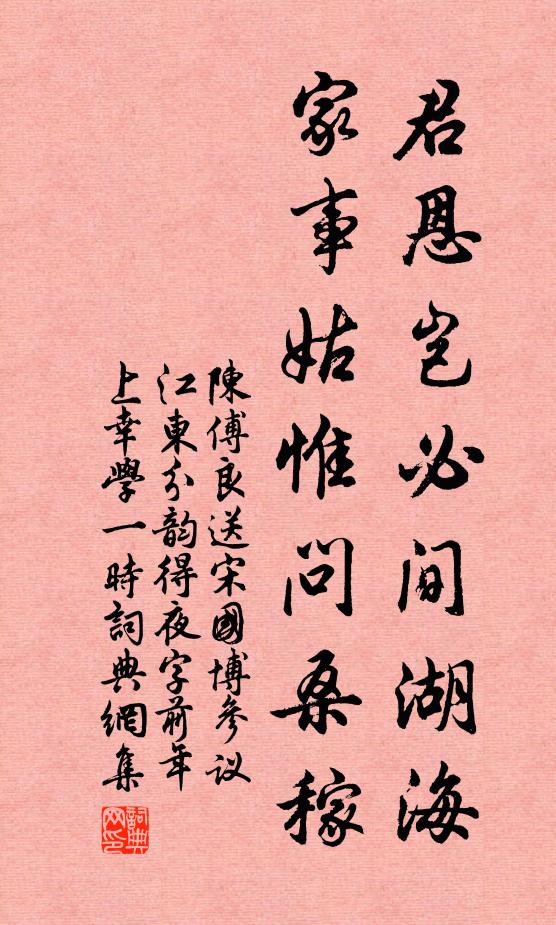 君恩岂必间湖海
家事姑惟问桑稼
陳傅良送宋國博參议
江東分韵得夜字前年
上幸學一時詞典網集
詞典网印